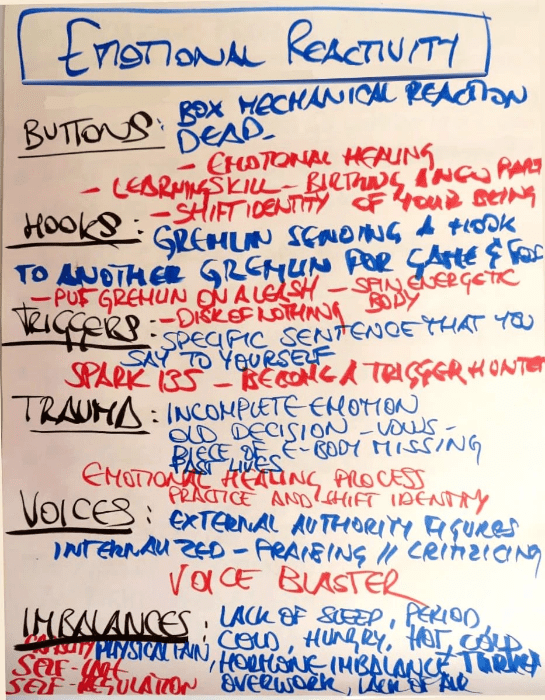 EMOTIONAL REACTIVITY
BUTTONS: BOX MECHANICAL REACTION
DEAD-
- EMOTIONAL HEALING
- LEARNING SKILL - BIRTHING A NEW PART
- SHIFT IDENTITY OF YOUR BEING
HOOKS: GREMLIN SENDING A HOOK
TO ANOTHER GREMLIN FOR GAME & FOOD
- PUT GREMLIN ON A LEASH - SPIN ENERGETIC
BODY
- DISK OF NOTHING
TRIGGERS: SPECIFIC SENTENCE THAT YOU
SAY TO YOURSELF
SPARK 135 - BECOME A TRIGGER HUNTER
TRAUMA: INCOMPLETE EMOTION
OLD DECISION - VOWS -
PIECE OF E-BODY MISSING
PAST LIVES
EMOTIONAL HEALING PROCESS
PRACTICE AND SHIFT IDENTITY
VOICES: EXTERNAL AUTHORITY FIGURES
INTERNALIZED - PRAISING // CRITICIZING
VOICE BLASTER
IMBALANCES: LACK OF SLEEP, PERIOD,
COLD, HUNGRY, HOT, COLD,
PHYSICAL PAIN, HORMONE IMBALANCE,
SELF-CARE
SELF-REGULATION OVERWORK, LACK OF AIR